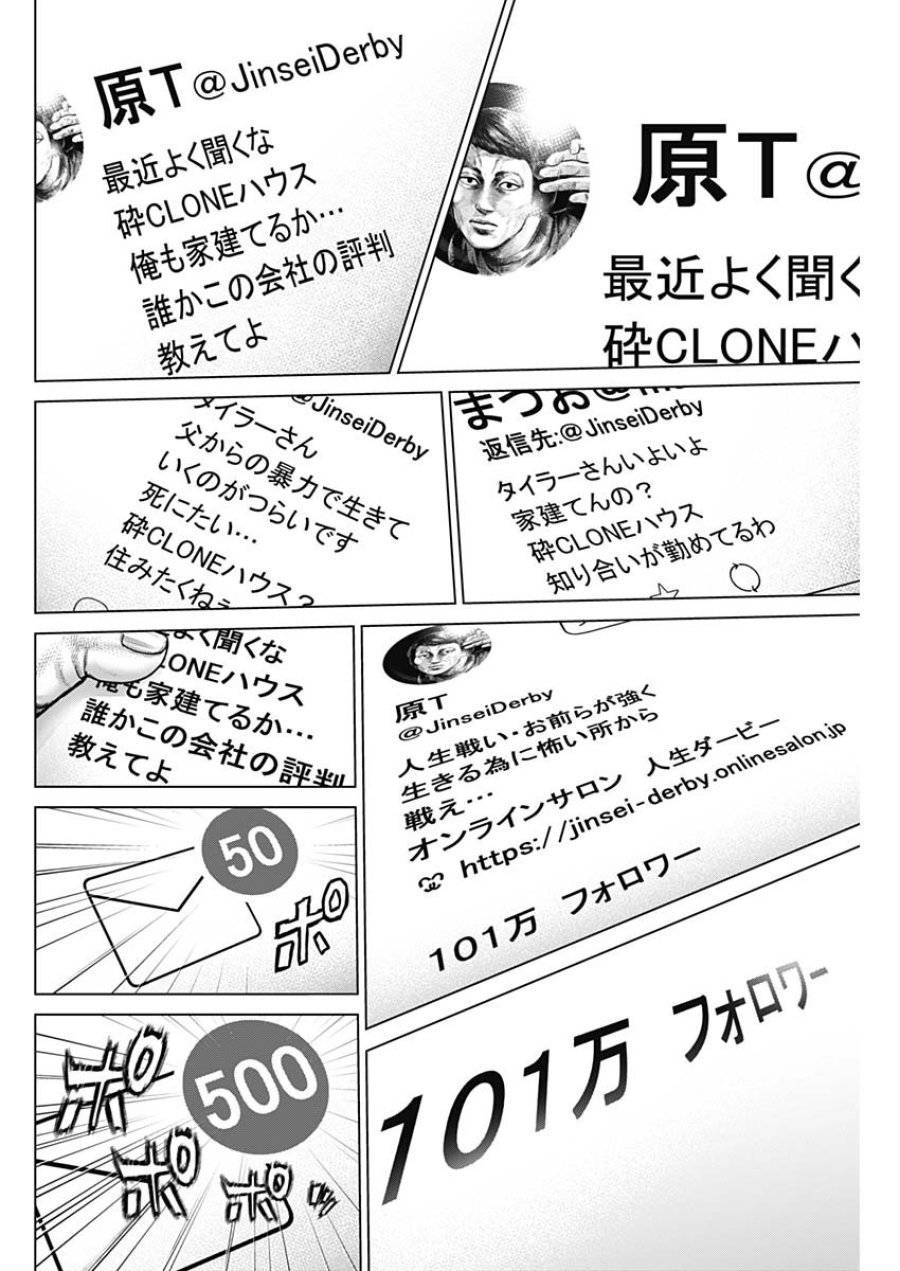 原T@
最近よく聞く
砕CLONEハ
原T@JinseiDerby
最近よく聞くな
砕CLONEハウス
俺も家建てるか…
誰かこの会社の評判
教えてよ
まつお@
返信先:@JinseiDerby
タイラーさんいよいよ
家建てんの？
砕CLONEハウス
知り合いが勤めてるわ
@JinseiDerby
タイラーさん
父からの暴力で生きて
いくのがつらいです
死にたい…
砕CLONEハウス？
住みたくねぇ
よく聞くな
LONEハウス
俺も家建てるか…
誰かこの会社の評判
教えてよ
原T
@JinseiDerby
人生戦い・お前らが強く
生きる為に怖い所から
戦え…
オンラインサロン 人生ダービー
https://jinsei-derby.onlinesalon.jp
101万 フォロワー
50
ポ
101万 フォロワー
500
ポ
ポ
ポ